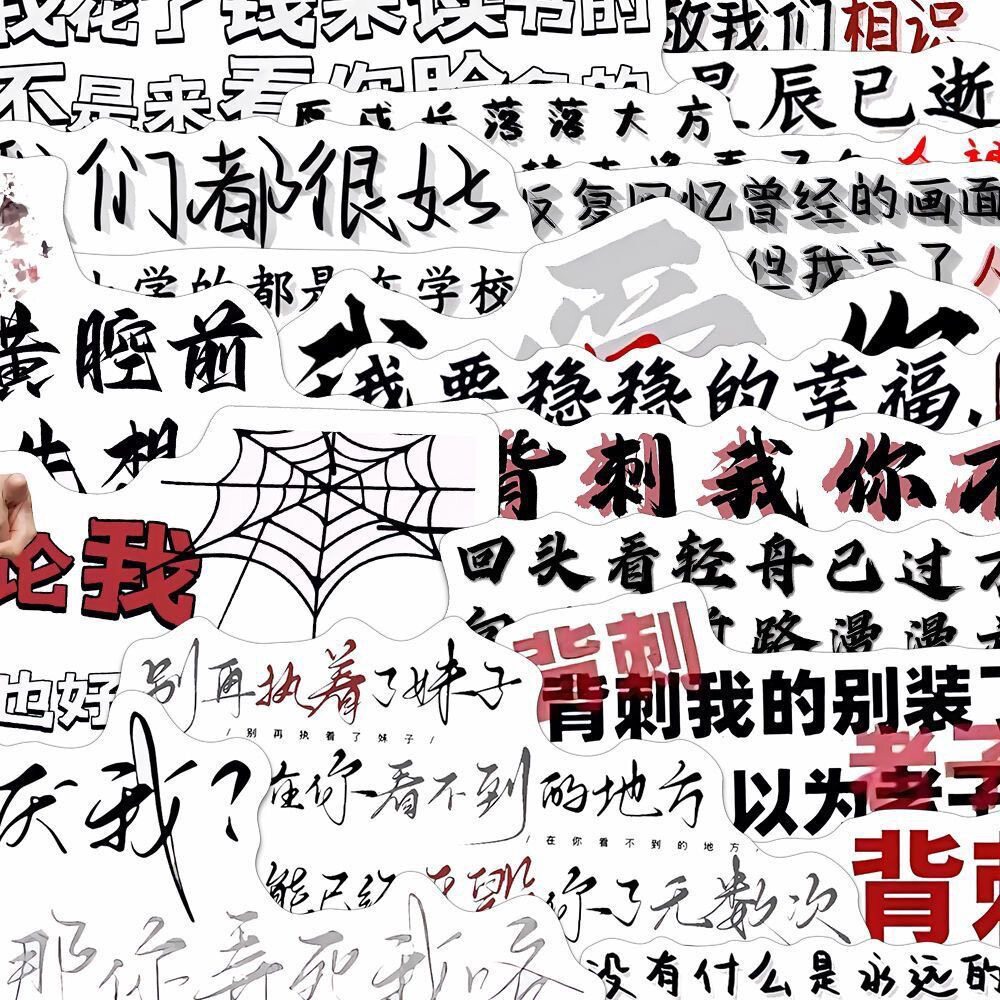 我花了钱来读书的
不是来看你脸色的
敬我们相识
星辰已逝
落落大方
们都很好
反复回忆曾经的画面
但我忘了人
学的都是在学校
黄腔前
先想
我
你
我要稳稳的幸福.
背刺我你不
论我
回头看轻舟已过
路漫漫
也好
别再执着了妹子
/别再执着了妹子/
背刺
背刺我的别装了
以为老子
老子
厌我?
在你看不到的地方
/在你看不到的地方/
背刺
能只给
你了无数次
那你弄死我咯
没有什么是永远的